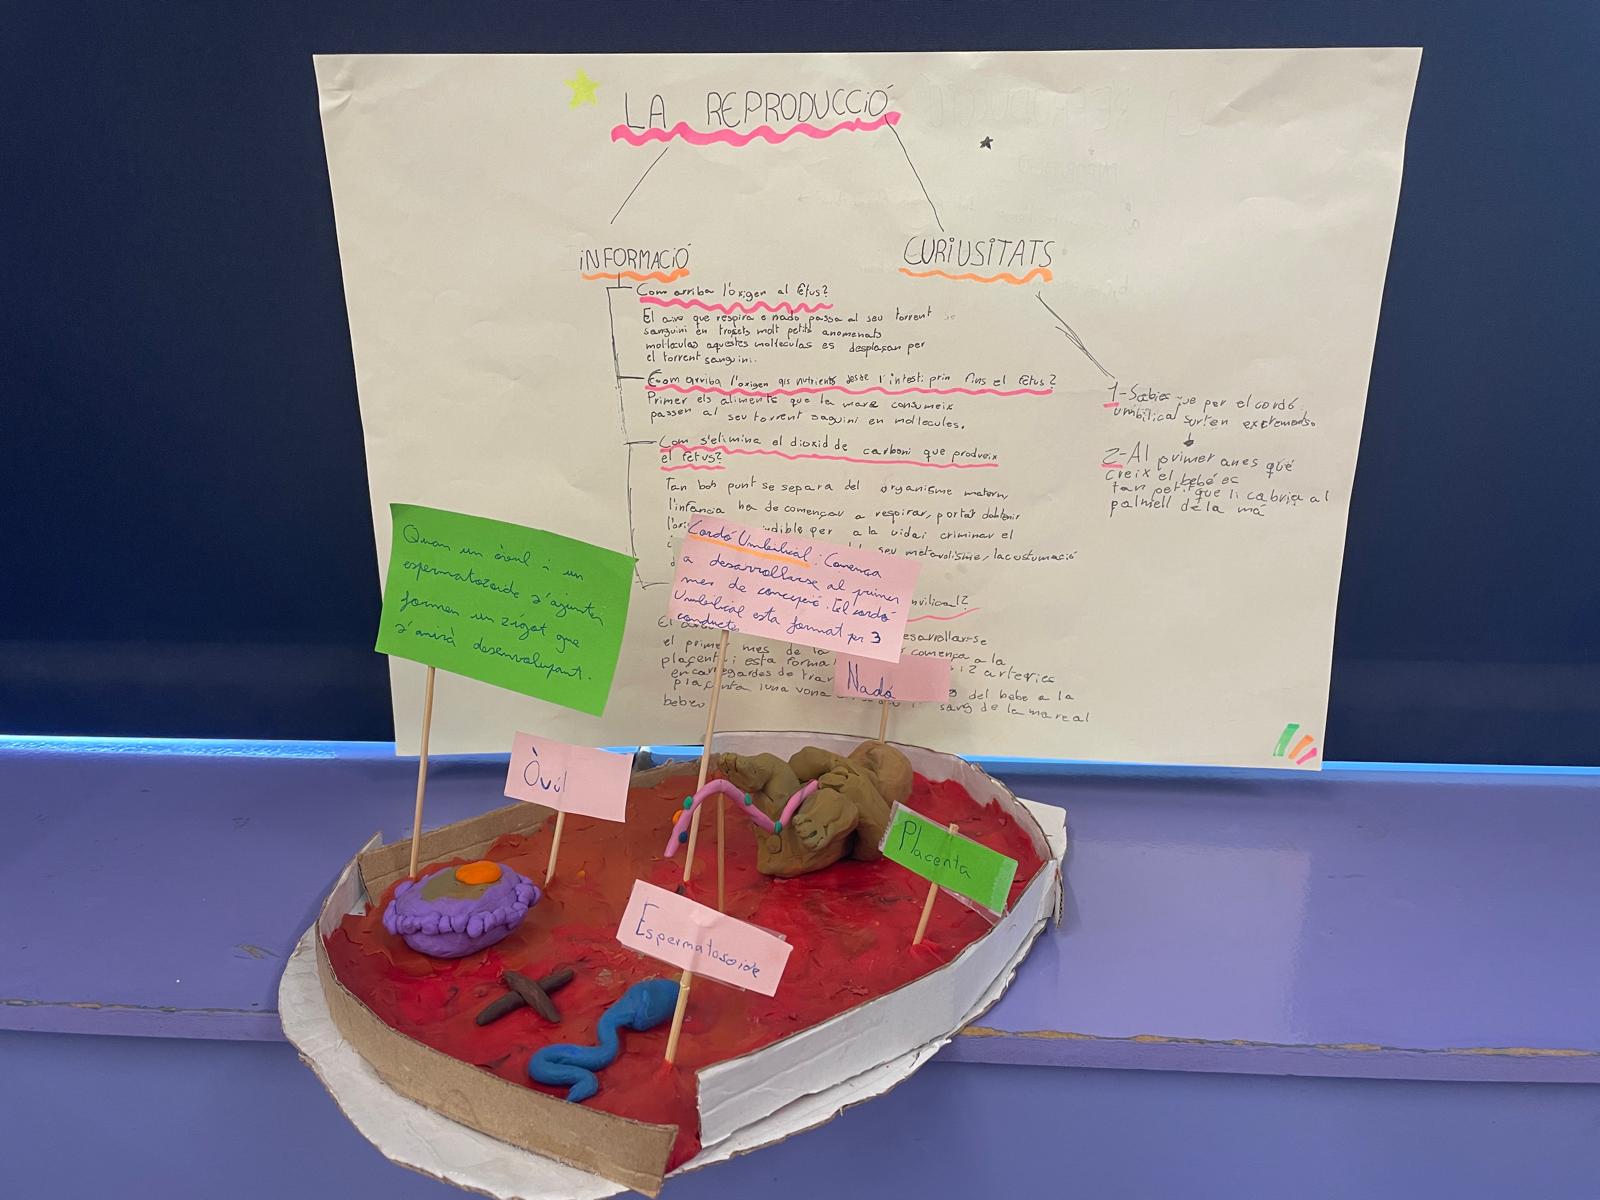 LA REPRODUCCIÓ
iNFORMACIÓ
Com arriba l'oxigen al fetus?
El aire que respira e nado passa al seu torrent se
sanguini en trosets molt petits anomenats
mollecules aquestes mollecules es desplaçan per
el torrent sanguini.
Com arriba l'oxigen als nutrients desde l'intesti prin fins el fetus?
Primer els aliments que la mare consumeix
passen al seu torrent saguini en mollecules.
Com s'elimina el dioxid de
carboni que produeix
el fetus?
Tan bon punt se separa del organisme matern,
l'infancia ha de començar a respirar, per
per a la vida i el
seu metavolisme,
el primer mes de la comença a la
placent i esta forma i 2 arteries
encarregardes de del bebe a la
placenta iuna sang de la mare al
CURiUSiTATS
1-Sabies que per el cordó
umbilical surten excrements.
2-Al primer anes que
creix el bebé es
tan petit que li cabria al
palmell de la má
Quan un òvul i un
espermatozoide s'ajunten
formen un zigot que
s'anirà desenvolupant.
Cordó Umbilical: Comença
a desarrollarse al primer
mes de concepció. El cordó
Umbilical esta format per 3
conductes
Nadó
Òvul
Placenta
Espermatosoide